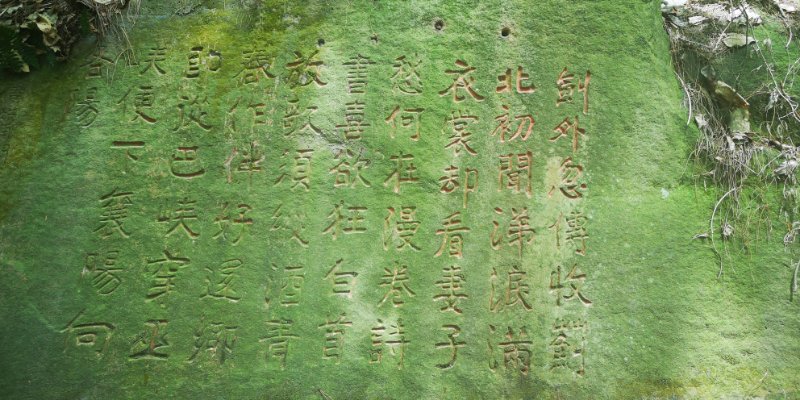 劍外忽傳收薊
北初聞涕淚滿
衣裳却看妻子
愁何在漫卷詩
書喜欲狂白首
放歌須縱酒青
春作伴好還鄉
即從巴峽穿巫
峽便下襄陽向
洛陽